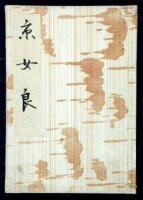 京女良